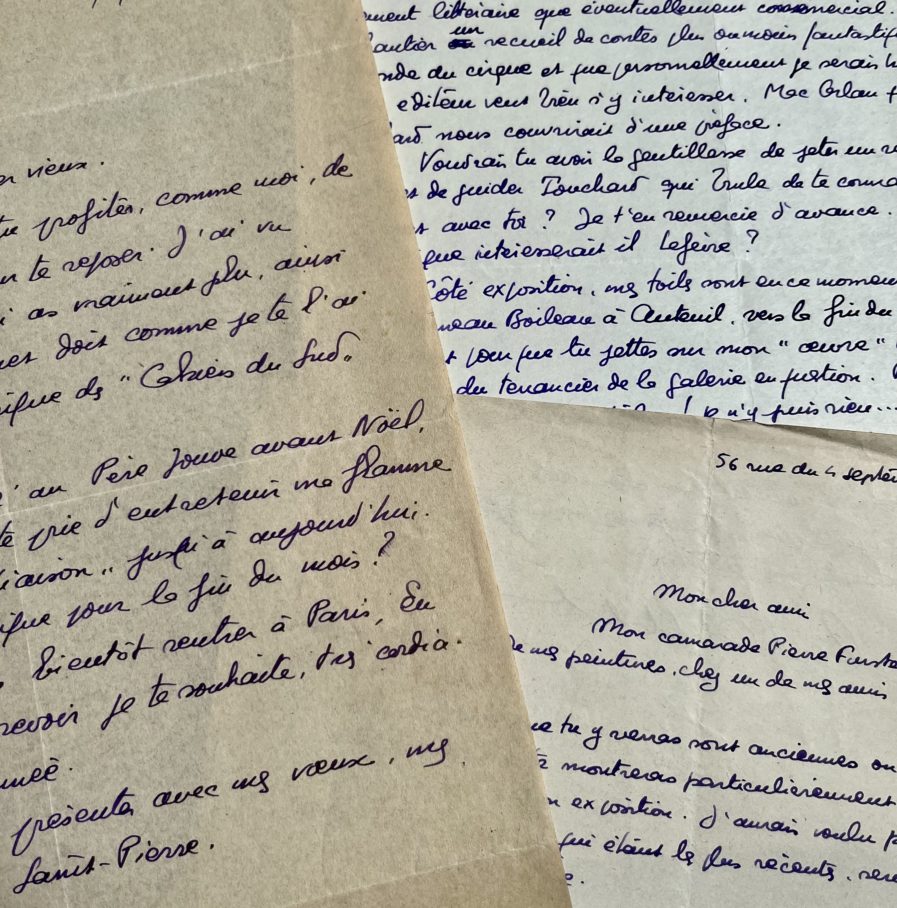 vieux.
tu profites, comme moi, de
te reposer. J'ai vu
as vraiment plu, ainsi
doit comme je te l'ai
des "Cahiers du Sud"
au Père Jouve avant Noël,
te prie d'entretenir ma flamme
liaison" jusqu'à aujourd'hui.
pour la fin du mois?
bientôt rentrer à Paris, En
revoir je te souhaite, très cordia-
présenter avec mes vœux, mes
Saint-Pierre.
ment littéraire que éventuellement commercial.
un
recueil de contes plus ou moins fantastiq
du cirque et que personnellement je serais h
éditeur veut bien s'y intéresser. Mac Orlan
nous couvrirait d'une préface.
Voudrais tu avoir la gentillesse de jeter un
de guider Touchard qui brule de te conna
avec toi? Je t'en remercie d'avance.
que intéresserait il Lefèvre?
Côté exposition, mes toiles sont en ce momen
Boileau à Auteuil, vers la fin du
pour que tu jettes sur mon "œuvre"
du tenancier de la galerie en question.
je n'y puis rien...
56 rue du 4 septe
Mon cher ami
Mon camarade Pierre
de mes peintures, chez un de mes amis
que tu y verras sont anciennes ou
montreras particulièrement
exposition. J'aurais voulu p
qui étant les plus récents, ser